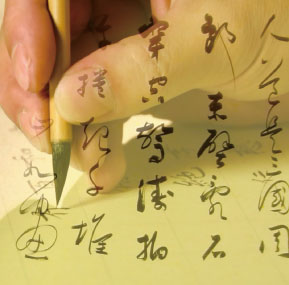 人道是三國周
郎赤壁亂石
穿空驚濤拍
捲起千堆